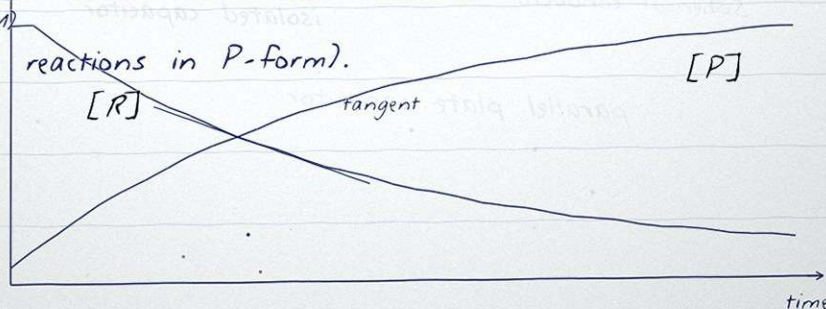 reactions in P-form).
[P]
[R]
tangent
time